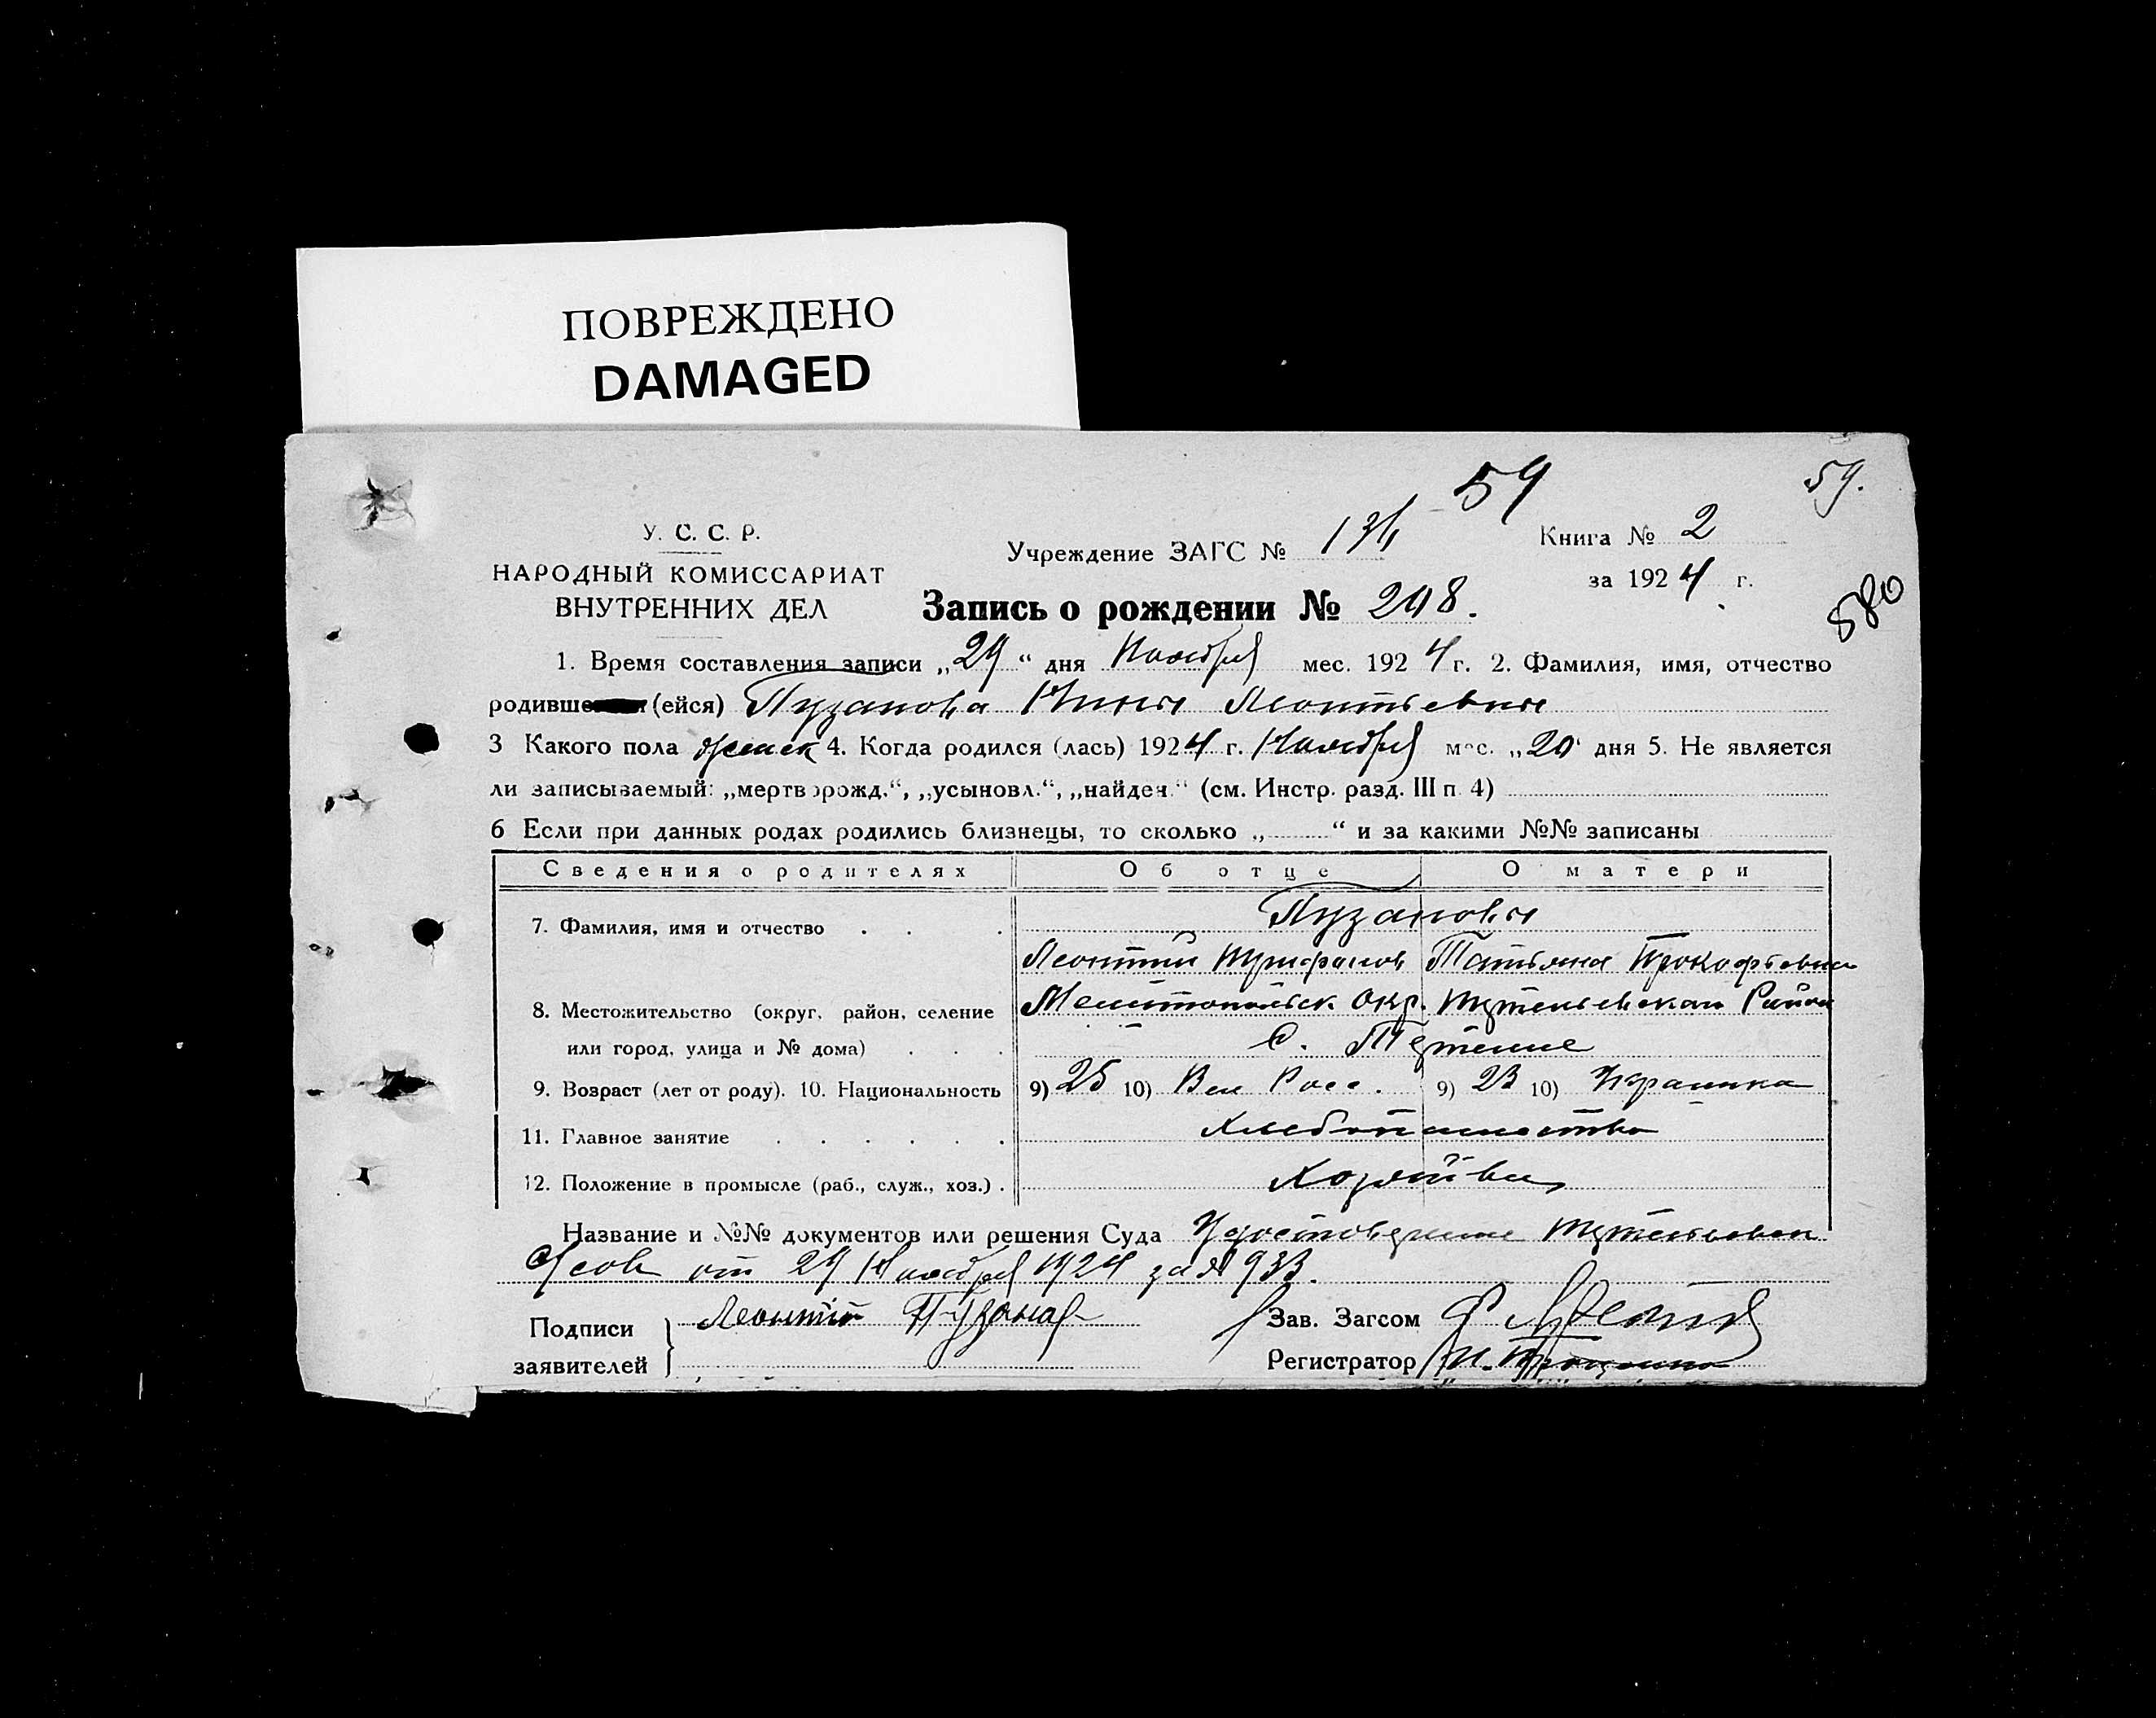 ПОВРЕЖДЕНО
DAMAGED
59
59.
У. С. С. Р.
НАРОДНЫЙ КОМИССАРИАТ
ВНУТРЕННИХ ДЕЛ
Учреждение ЗАГС №
Книга № 2
за 1924 г.
580
Запись о рождении № 298.
1. Время составления записи „29“ дня Ноября мес. 1924 г. 2. Фамилия, имя, отчество
родивше (ейся) Пузанова Нина Леонтьевна
3 Какого пола женск 4. Когда родился (лась) 1924 г. Ноября мес. „20“ дня 5. Не является
ли записываемый: „мертворожд.“, „усыновл.“, „найден.“ (см. Инстр. разд. III п. 4)
6 Если при данных родах родились близнецы, то сколько „ “ и за какими №№ записаны
Сведения о родителях Об отце О матери
7. Фамилия, имя и отчество Пузановы
Леонтий Трифонов Татьяна Прокофьевна
8. Местожительство (округ, район, селение Мелитопольск Окр.
или город, улица и № дома) С.
9. Возраст (лет от роду). 10. Национальность 9) 25 10) Вел Росс. 9) 23 10) Украинка
11. Главное занятие Хлебопашество
12. Положение в промысле (раб., служ., хоз.)
Название и №№ документов или решения Суда
от 29 Ноября 1924 за № 933.
Подписи
заявителей } Леонтий Пузанов
Зав. Загсом
Регистратор